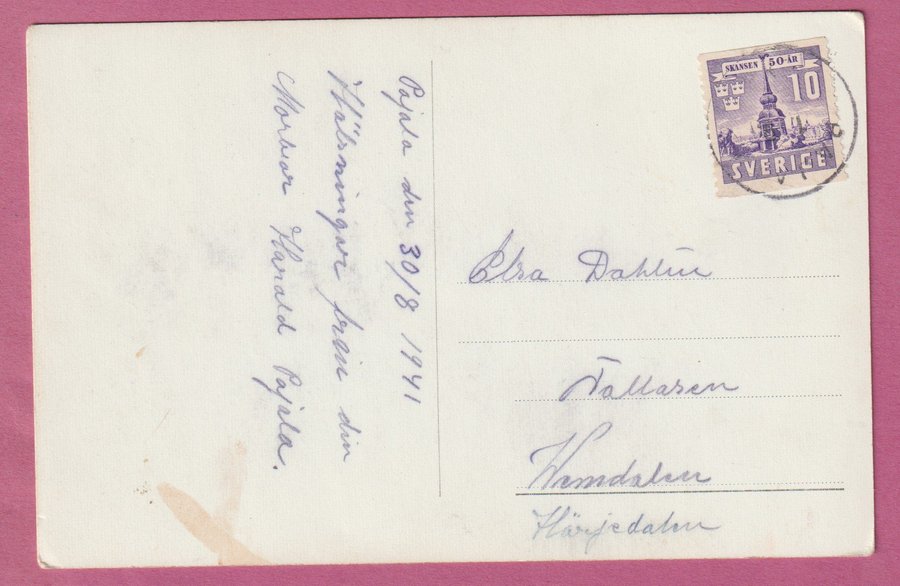 Pajala den 30/8 1941
Hälsningar från din
Morbror Harald Pajala.
SKANSEN 50 ÅR
10
SVERIGE
Elsa Dahlin
Tallåsen
Wemdalen
Härjedalen